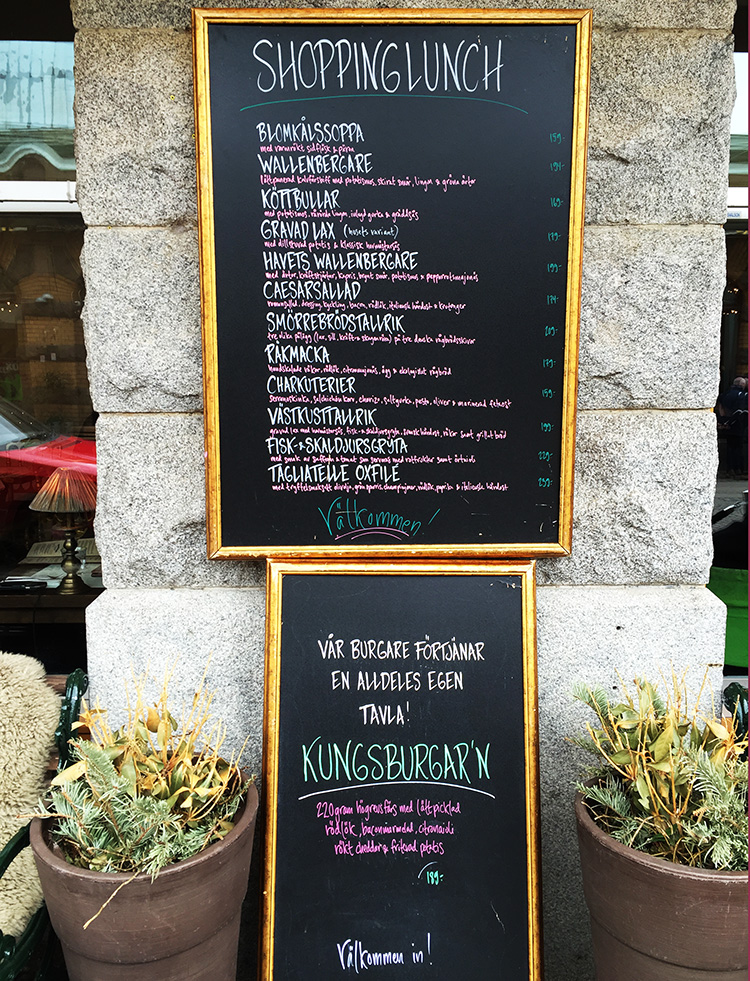 SHOPPINGLUNCH
BLOMKÅLSSOPPA 139:-
med varmrökt sidfläsk & purjo
WALLENBERGARE 194:-
lättpanerad kalvfärsbiff med potatismos, skirat smör, lingon & gröna ärtor
KÖTTBULLAR 169:-
med potatismos, rårörda lingon, inlagd gurka & gräddsås
GRAVAD LAX (husets variant) 179:-
med dillstuvad potatis & klassisk hovmästarsås
HAVETS WALLENBERGARE 199:-
med ärtor, kräftstjärtar, kapris, brynt smör, potatismos & pepparrotsmajonäs
CAESARSALLAD 174:-
romansallad, dressing, kyckling, bacon, rödlök, italiensk hårdost & krutonger
SMÖRREBRÖDSTALLRIK 209:-
tre olika pålägg (lax, sill, kräft- & skagenröra) på tre danska rågbrödsskivor
RÄKMACKA 179:-
handskalade räkor, rödlök, citronmajonäs, ägg & ekologiskt rågbröd
CHARKUTERIER 159:-
serranoskinka, salchichón, chorizo, saltgurka, pesto, oliver & marinerad fetaost
VÄSTKUSTTALLRIK 199:-
gravad lax med hovmästarsås, fisk- & skaldjursgryta, svensk hårdost, räkor samt grillat bröd
FISK- & SKALDJURSGRYTA 229:-
med smak av saffran & tomat som serveras med rotfrukter samt örtaioli
TAGLIATELLE OXFILÉ 239:-
med tryffelsmaksatt olivolja, grön sparris, champinjoner, rödlök, paprika & italiensk hårdost
Välkommen!
VÅR BURGARE FÖRTJÄNAR
EN ALLDELES EGEN
TAVLA!
KUNGSBURGAR'N
220gram högrevsfärs med lättpicklad
rödlök, baconmarmelad, citronaioli
rökt cheddar & friterad potatis
189:-
Välkommen in!